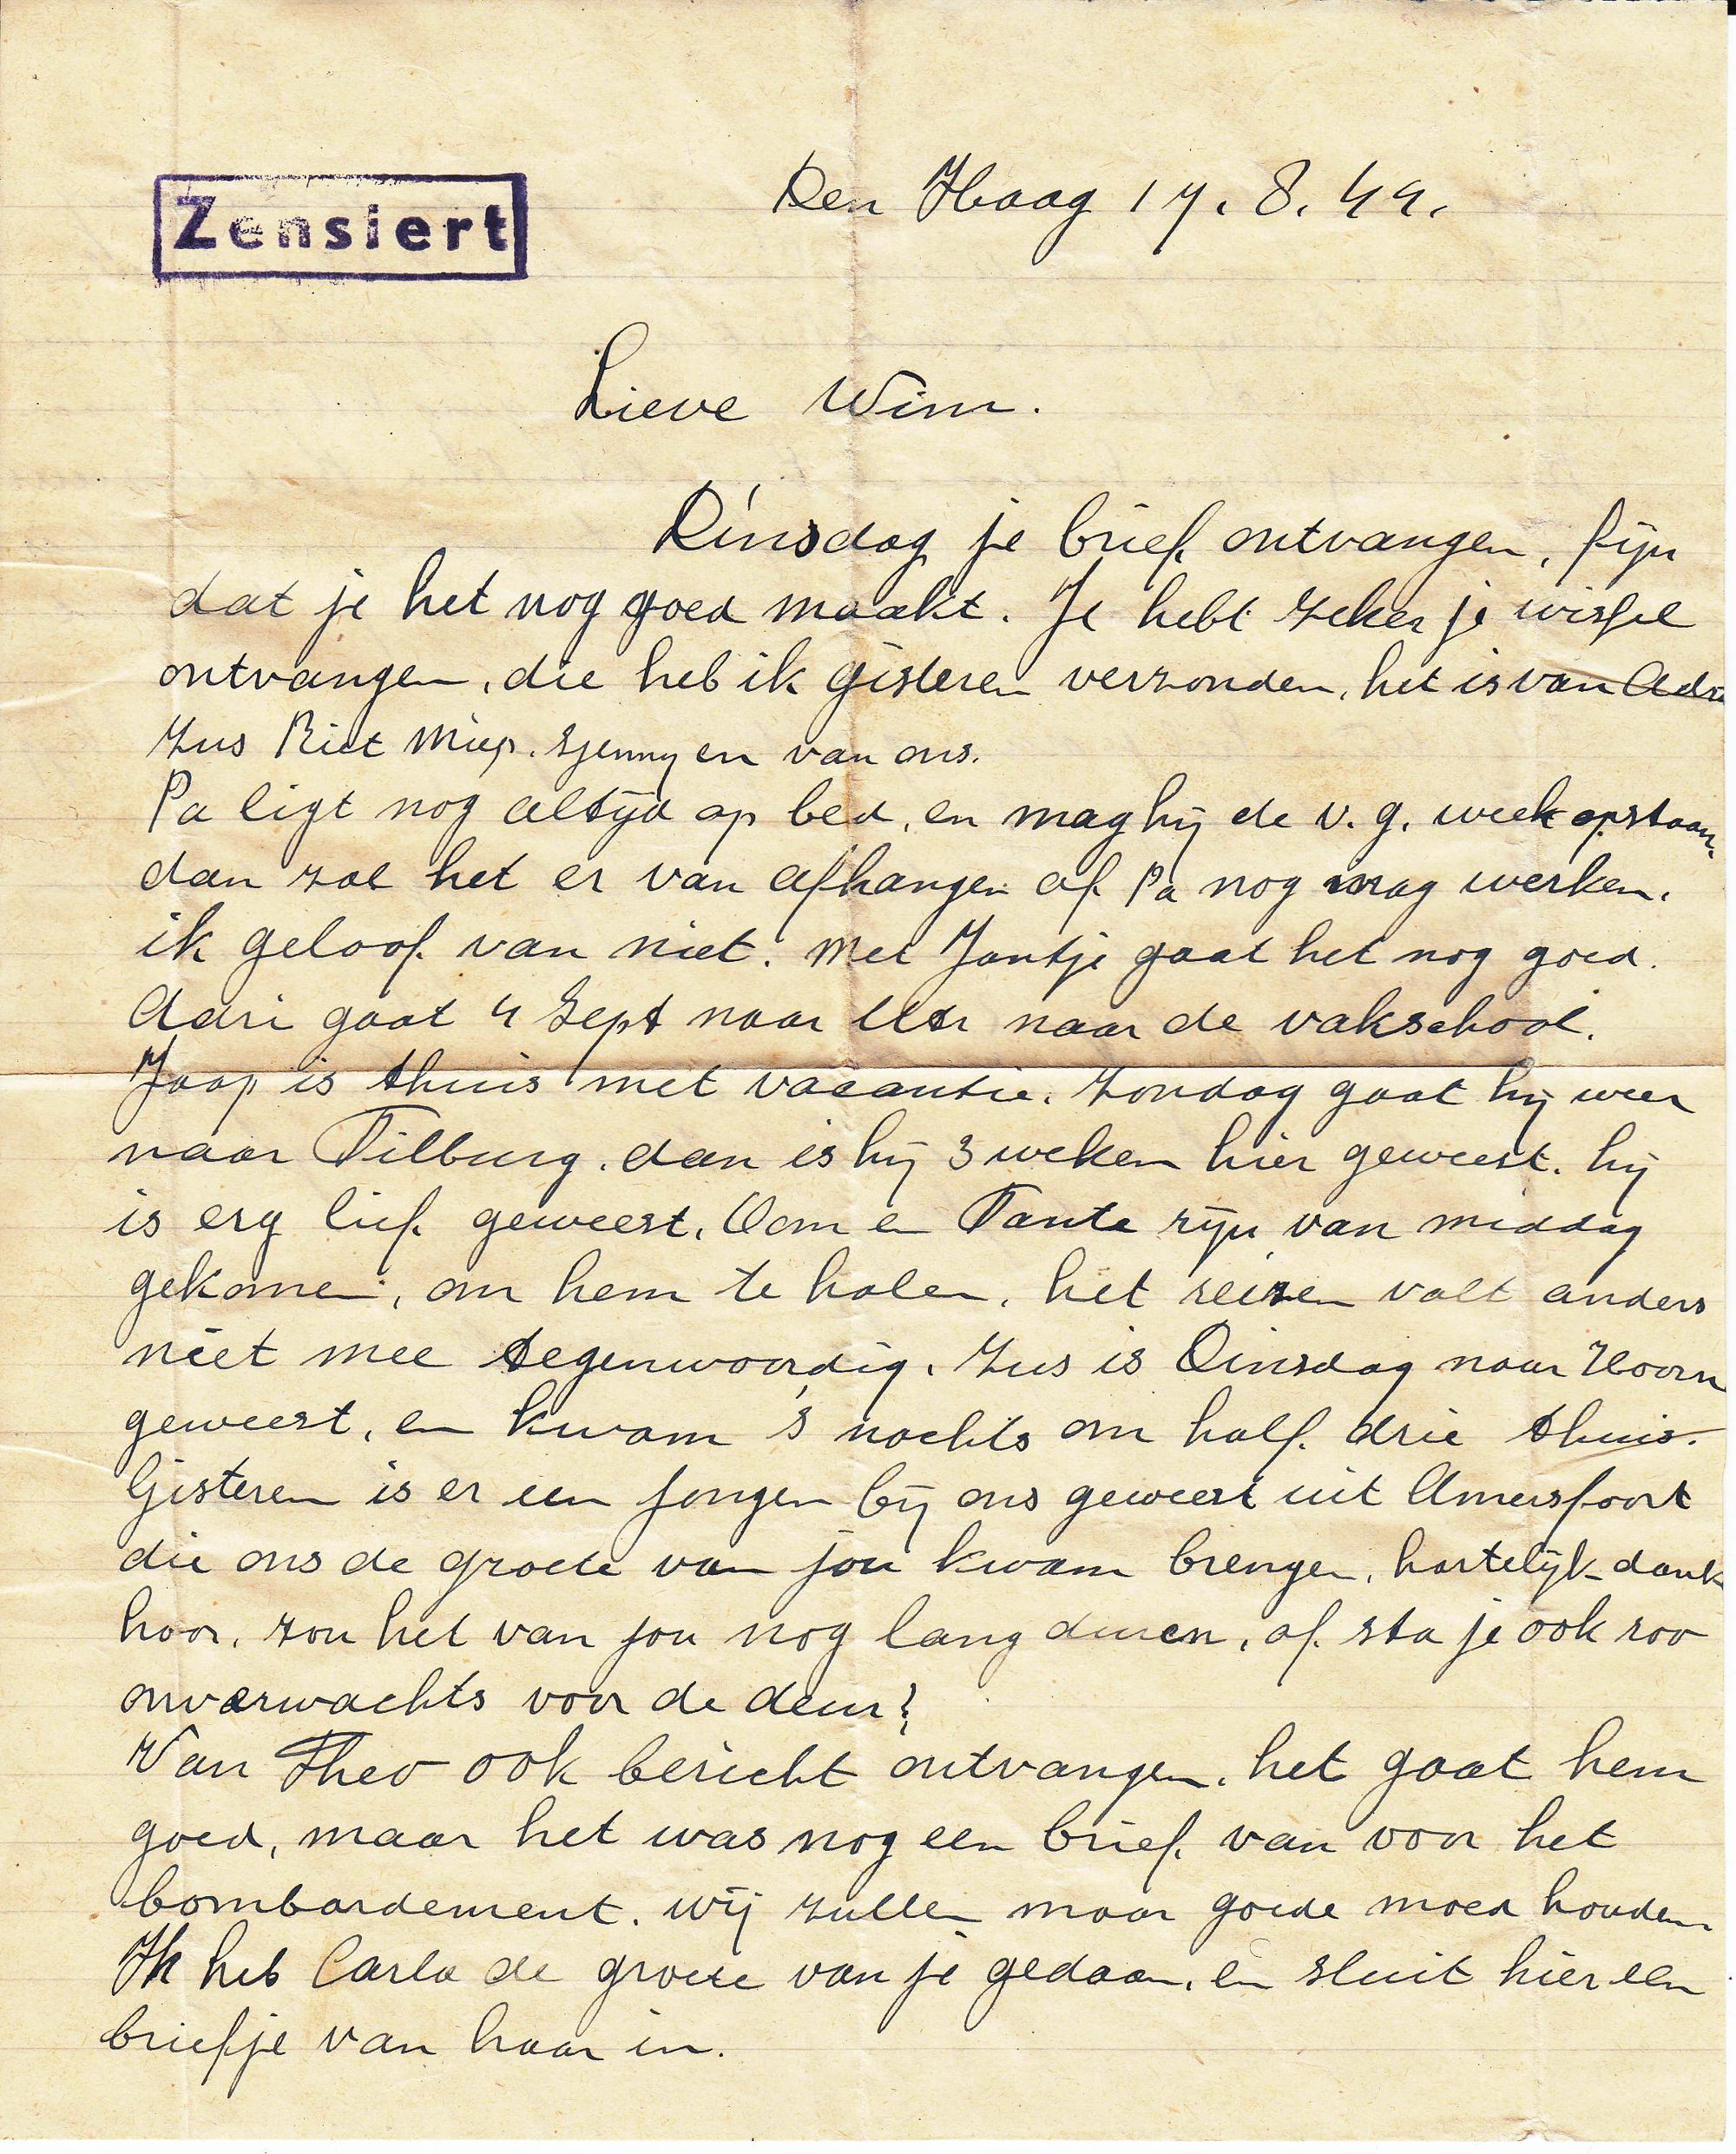 Zensiert
Den Haag 17.8.44.
Lieve Wim.
Dinsdag je brief ontvangen, fijn
dat je het nog goed maakt. Je hebt zeker je wissel
ontvangen, die heb ik gisteren verzonden, het is van Adri
Zus Riet Miep. Sjenny en van ons.
Pa ligt nog altijd op bed, en mag hij de v.g. week opstaan,
dan zal het er van afhangen of Pa nog mag werken,
ik geloof van niet. Met Jantje gaat het nog goed.
Adri gaat 4 Sept naar Utr naar de vakschool.
Jaap is thuis met vacantie. Zondag gaat hij weer
naar Tilburg, dan is hij 3 weken hier geweest. hij
is erg lief geweest. Oom en Tante zijn van middag
gekomen, om hem te halen, het reizen valt anders
niet mee tegenwoordig. Zus is Dinsdag naar Hoorn
geweest, en kwam 's nachts om half drie thuis.
Gisteren is er een jongen bij ons geweest uit Amersfoort
die ons de groete van jou kwam brengen, hartelijk dank
hoor, zou het van jou nog lang duren, of sta je ook zoo
onverwachts voor de deur?
Van Theo ook bericht ontvangen, het gaat hem
goed, maar het was nog een brief van voor het
bombardement. wij zullen maar goede moed houden.
Ik heb Carla de groete van je gedaan, en sluit hier een
briefje van haar in.